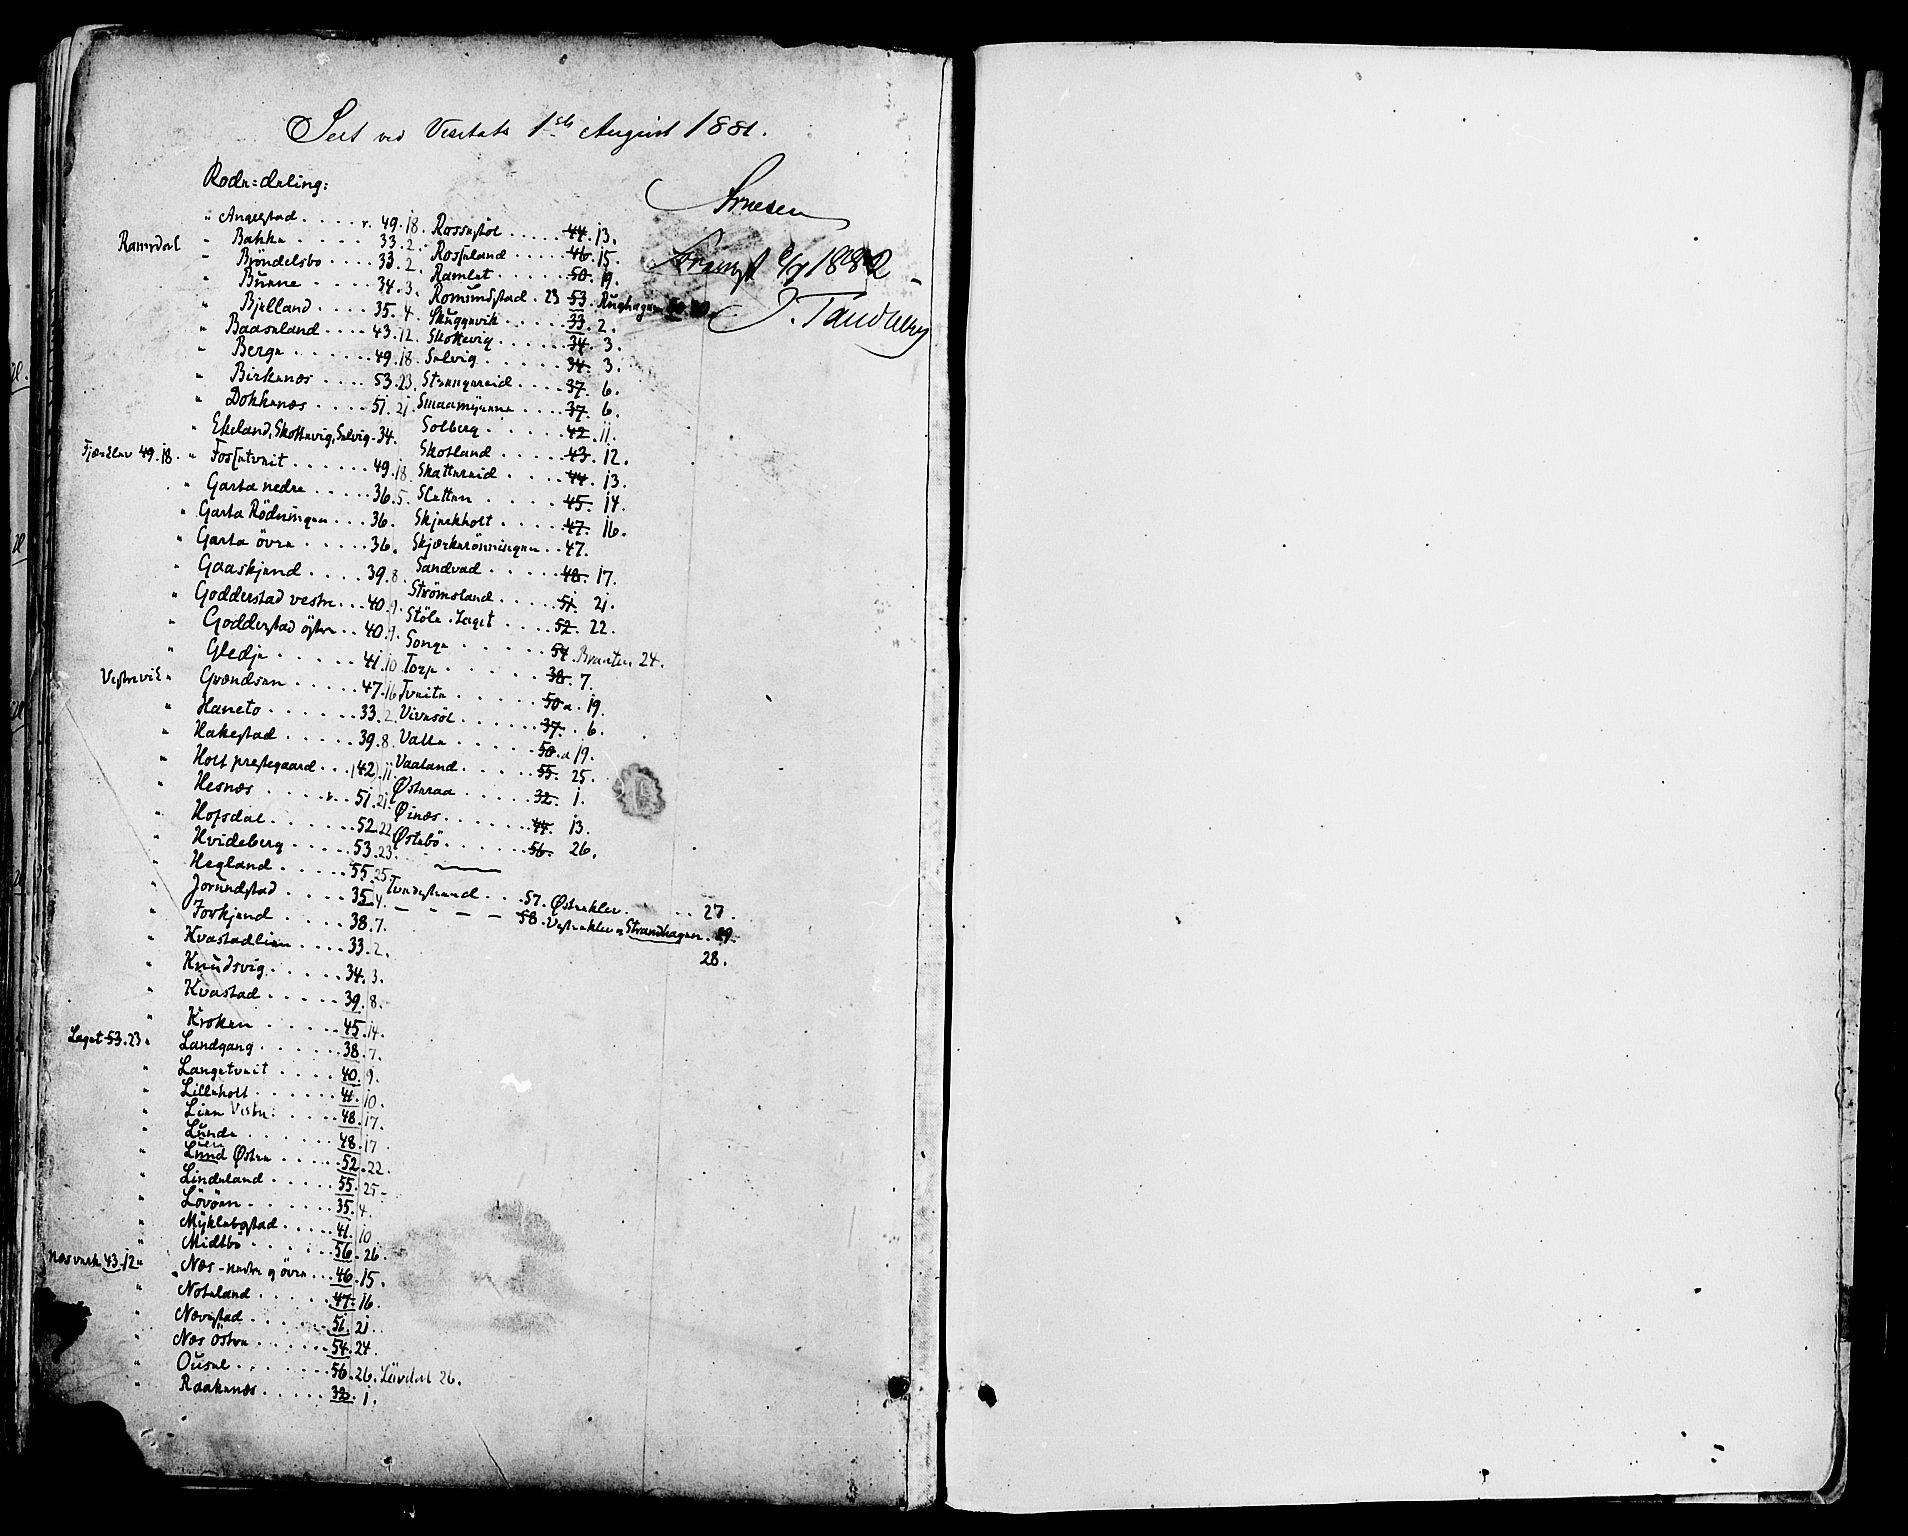 Seet ved Visitats 1ste August 1881.
Arnesen
Rode=deling:
" Angelstad . . . . . r. 49.18.
Ramsdal " Bakke . . . . . 33.2.
" Bröndelsbo . . . . 33.2.
" Bunne . . . . . 34.3.
" Bjelland . . . . 35.4.
" Baaseland . . . . 43.12.
" Berge . . . . . . 49.18.
" Birkenæs . . . . 53.23.
" Dokkenæs . . . . 51.21.
" Ekeland, Skottevig, Selvig-34.
Fjæreklev 49.18. " Fossetveit . . . . . . 49.18
" Garta nedre . . . . 36.5.
" Garta Röderingen . . . 36.
" Garta övre . . . . . . 36.
" Gaaskjend . . . . 39.8.
" Godderstad vestre . . . 40.9.
" Godderstad östre . . 40.9.
" Gledje . . . . . 41.10
Vestrevik " Grændsen . . . . . 47.16
" Haneto . . . . . . 33.2.
" Hakestad . . . . . 39.8.
" Holt prestegaard . . . (42).11.
" Hesnæs . . . . . 51.21.
" Hofsdal . . . . . . 52.22
" Hvideberg . . . . . 53.23.
" Hegland . . . . . 55.25.
" Jorundstad . . . . 35.4.
" Forkjend . . . . 38.7.
" Kvastadlien . . . . 33.2.
" Knudsvig . . . . . 34.3.
" Kvastad . . . . . 39.8.
" Kroken . . . . . 45.14.
Laget 53.23. " Landgang . . . . . . 38.7.
" Langetveit . . . . . 40.9.
" Lilleholt . . . . . . 41.10.
" Lien Vestre . . . . . 48.17.
" Lunde . . . . . . 48.17
" Lund Østre . . . . . 52.22.
" Lindeland . . . . . 55.25.
" Lövöen . . . . . . 35.4.
" Myklebostad . . . . 41.10
" Midtbö . . . . . 56.26.
Næsverk 43.12 " Næs-nedre og övre . . . 46.15.
" Noteland . . . . . . 47.16.
" Nævestad . . . . . . 51.21.
" Næs östre . . . . . . 54.24.
" Ousel . . . . . . 56.26. Lövdal 26.
" Raakenæs . . . . . 32.1.
Rossestöl . . . . . 44.13.
Rosseland . . . . 46.15.
Ramlet . . . . . 50.19.
Romundstad . 23 53. Rughagen 50.20.
Skuggevik . . . . . 33.2.
Skottevig . . . . . . 34.3.
Selvig . . . . . . 34.3.
Strengereid . . . . 37.6.
Smaamyrene . . . . 37.6.
Solberg . . . . . . 42.11.
Skotland . . . . . 43.12.
Skattereid . . . . 44.13.
Sletten . . . . . 45.14.
Skjerkholt . . . . . 47.16.
Skjærkerönningen . . 47.
Sandvad . . . . . 48.17.
Strömsland . . . . . 51.21.
Stöle. Laget . . . . 52.22.
Songe . . . . . . 54. Braaten 24.
Torp . . . . . . 38.7.
Tveite . . . . . . 50a.19.
Vivesöl . . . . . . 37.6.
Valle . . . . . . 50.a19.
Vaaland . . . . . 55.25.
Østeraa . . . . . 32.1.
Øinæs . . . . . . 44.13.
Østebö . . . . . . 56.26.
Tvedestrand . . . 57. Østreklev . . . . 27.
— " — — 58. Vestreklev og Strandhagen . 29.
28.
1882
J. Tandberg